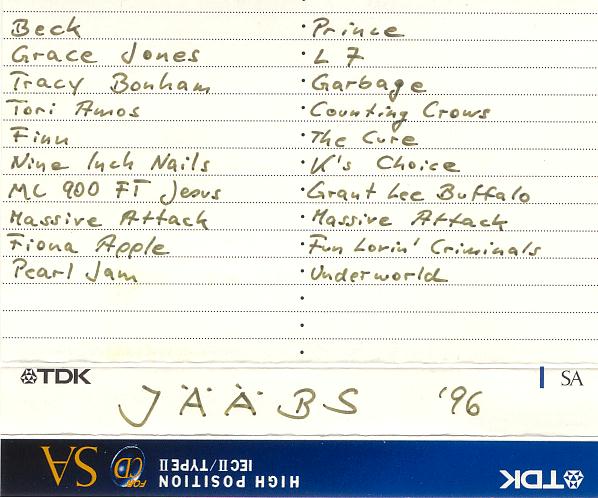 Beck · Prince
Grace Jones · L 7
Tracy Bonham · Garbage
Tori Amos · Counting Crows
Finn · The Cure
Nine Inch Nails · K's Choice
MC 900 FT Jesus · Grant Lee Buffalo
Massive Attack · Massive Attack
Fiona Apple · Fun Lovin' Criminals
Pearl Jam · Underworld
TDK SA
JÄÄBS '96
SA FOR CD HIGH POSITION IEC II/TYPE II TDK